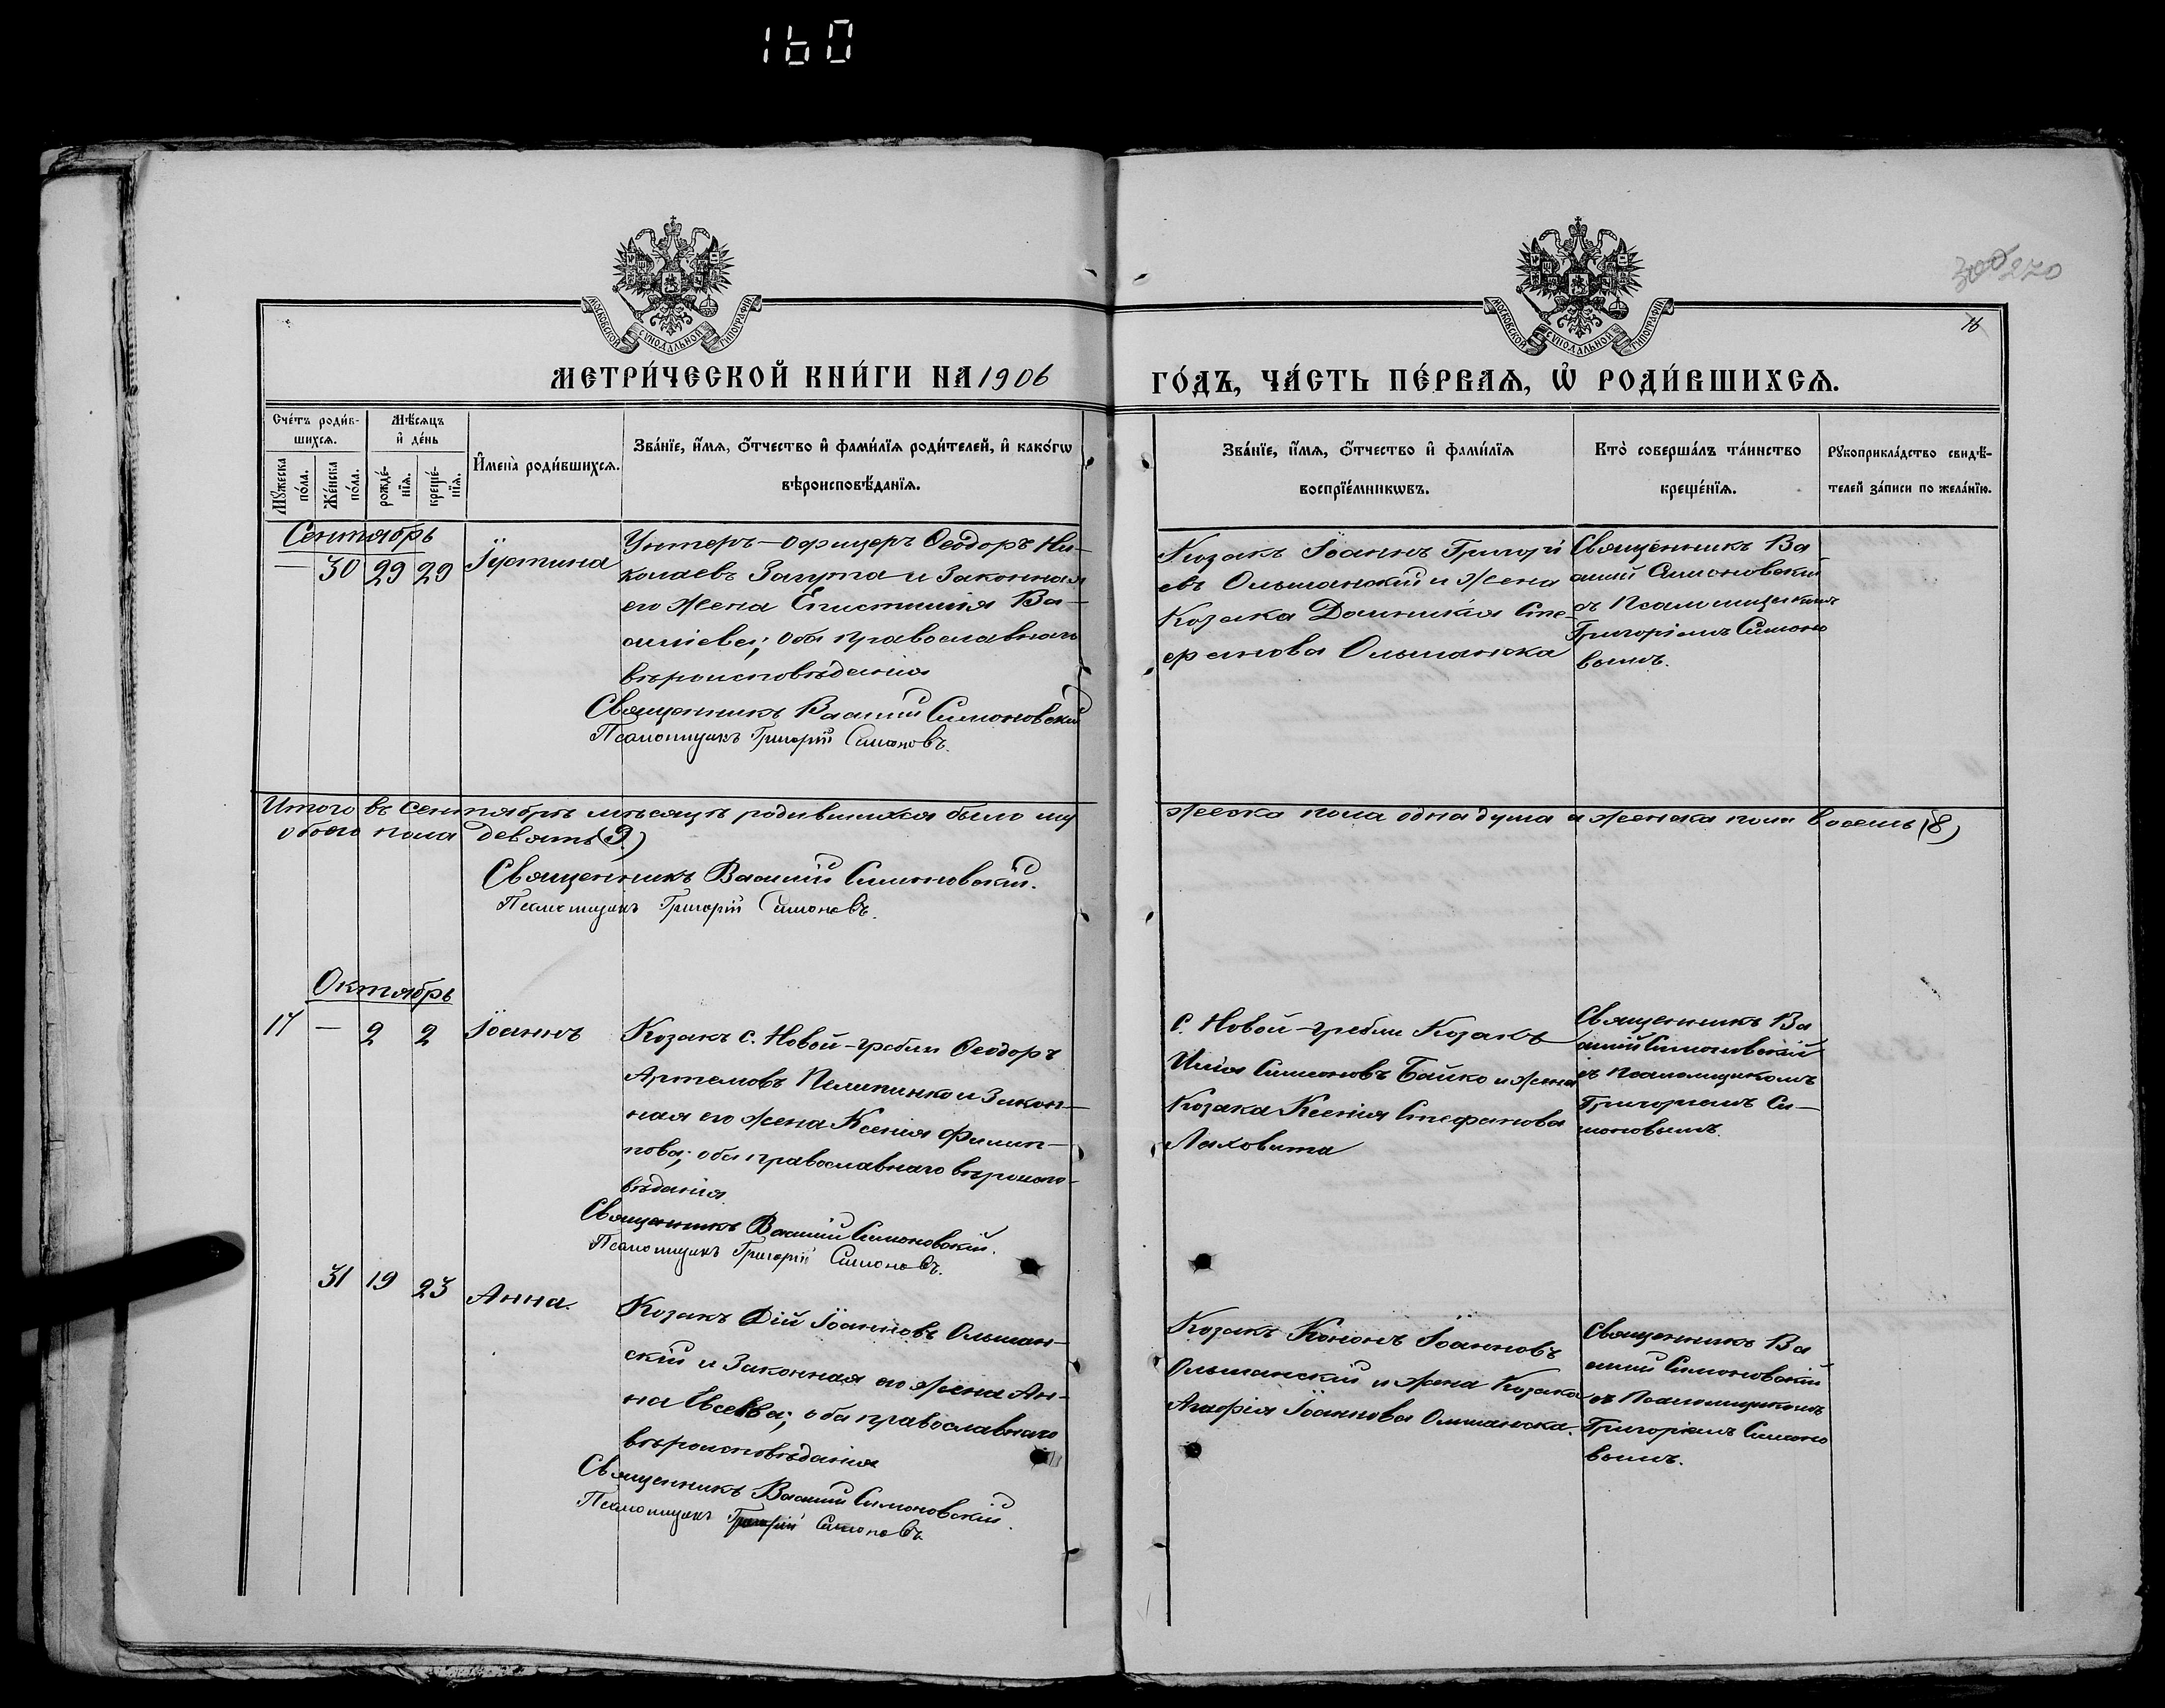 160
300 270
16
МОСКОВСКОЙ СѴНОДАЛЬНОЙ ТИПОГРАФІИ
МОСКОВСКОЙ СѴНОДАЛЬНОЙ ТИПОГРАФІИ
МЕТРИ́ЧЕСКОЙ КНИ́ГИ НА 1906
ГО́ДЪ, ЧА́СТЬ ПЕ́РВАѦ, Ѡ҆ РОДИ́ВШИХСѦ.
Сче́тъ роди́в-
шихсѧ.
Мѣ́сѧцъ
и҆ де́нь
Мꙋ́жеска
по́ла.
Же́нска
по́ла.
рожде́-
нїѧ.
креще́-
нїѧ.
И҆мена̀ роди́вшихсѧ.
Зва́нїе, и҆́мѧ, ѻ҆́тчество и҆ фами́лїѧ роди́телей, и҆ како́гѡ
вѣроисповѣ́данїѧ.
Зва́нїе, и҆́мѧ, ѻ҆́тчество и҆ фами́лїѧ
воспрїе́мникѡвъ.
Кто̀ соверша́лъ та́инство
креще́нїѧ.
Рꙋкоприкла́дство свидѣ́-
телей за́писи по жела́нїю.
Сентябрь
— 30 29 29
Іустина
Унтеръ-офицеръ Ѳеодоръ Ни-
колаевъ Загута и законная
его жена Епистимія Ва-
силіева; оба православнаго
вѣроисповѣданія
Священникъ Василій Симоновскій
Псаломщикъ Григорій Симоновъ.
Козакъ Іоаннъ Григорі
евъ Ольшанскій и жена
Козака Домникія Сте-
фанова Ольшанска
Священникъ Ва
силій Симоновскій
съ Псаломщикомъ
Григоріемъ Симоно
вымъ.
Итого въ сентябрѣ мѣсяцѣ родившихся было му
жеска пола одна душа и женска пола восемь (8)
обоего пола девять (9)
Священникъ Василій Симоновскій.
Псаломщикъ Григорій Симоновъ.
Октябрь
17 — 2 2
Іоаннъ
Козакъ с. Новой-гребли Ѳеодоръ
Артемовъ Пелипинко и закон-
ная его жена Ксенія Филип-
пова; оба православнаго вѣроиспо-
вѣданія
Священникъ Василій Симоновскій.
Псаломщикъ Григорій Симоновъ.
С. Новой-гребли Козакъ
Илія Симеоновъ Байко и жена
Козака Ксенія Стефанова
Ляховита
Священникъ Ва
силій Симоновскій
съ псаломщикомъ
Григоріемъ Си-
моновымъ.
31 19 23
Анна.
Козакъ Дій Іоанновъ Ольшан-
скій и законная его жена Ан-
на Евсеева; оба православнаго
вѣроисповѣданія
Священникъ Василій Симоновскій.
Псаломщикъ Григорій Симоновъ.
Козакъ Кононъ Іоанновъ
Ольшанскій и жена Козака
Агафія Іоаннова Ольшанска.
Священникъ Ва
силій Симоновскій
съ Псаломщикомъ
Григоріемъ Симоно
вымъ.